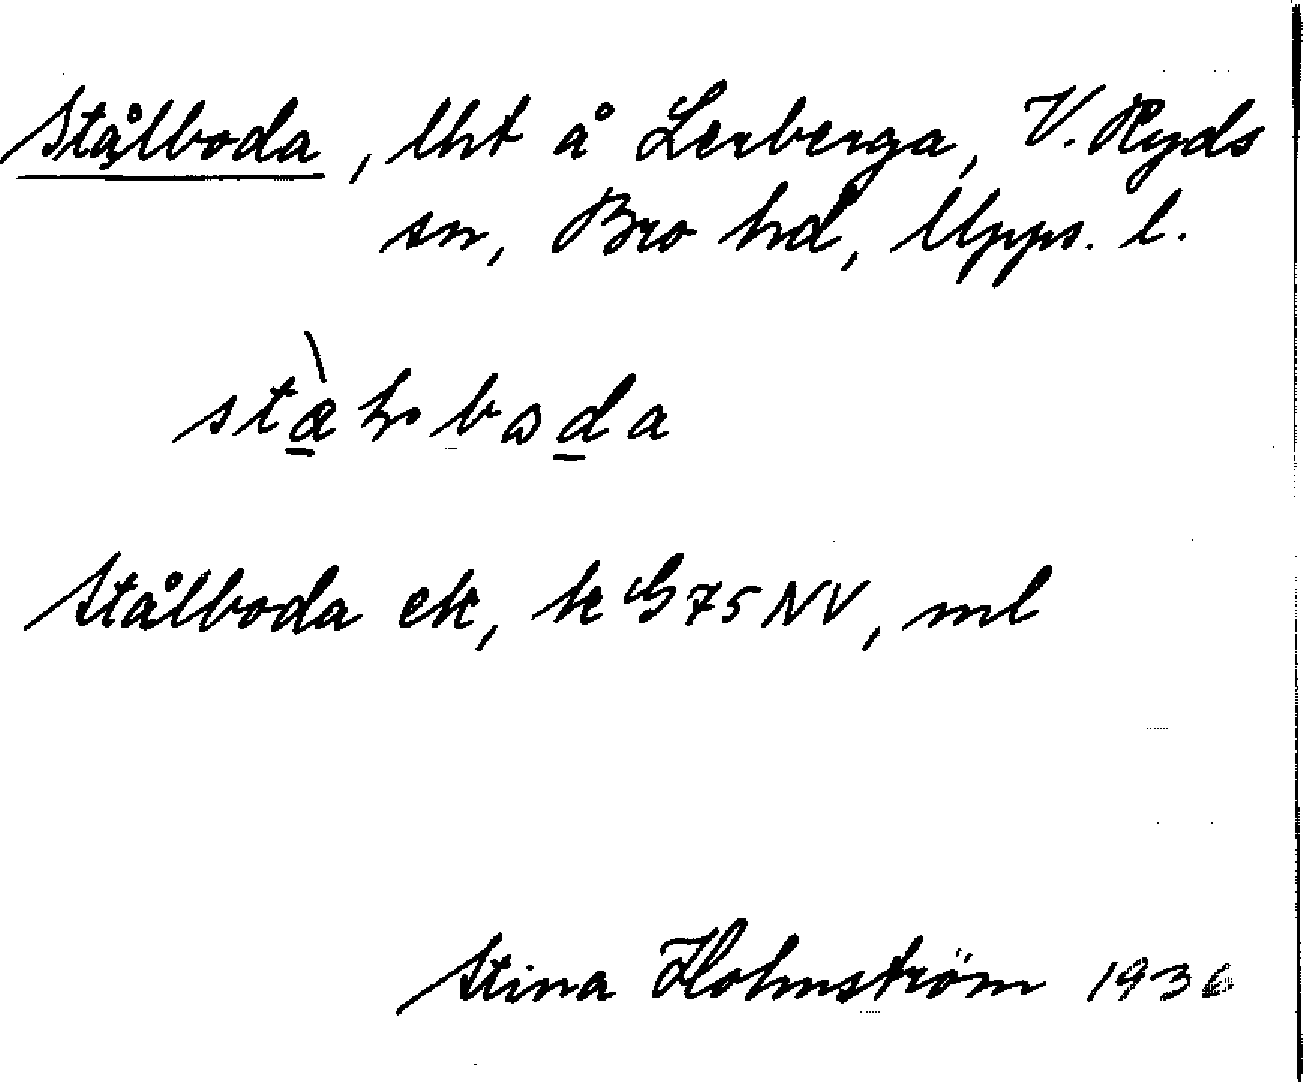 Stålboda, lht å Lerberga, V. Ryds
sn, Bro hd, Upps. l.
Stålboda ek, k G 75 NV, ml
Stina Holmström 1936